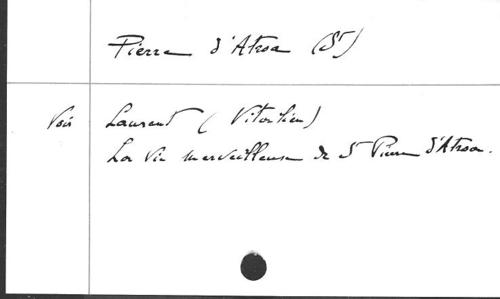 Pierre d'Atroa (St)
Voir Laurent (Vitalien)
La Vie merveilleuse de St Pierre d'Atroa.